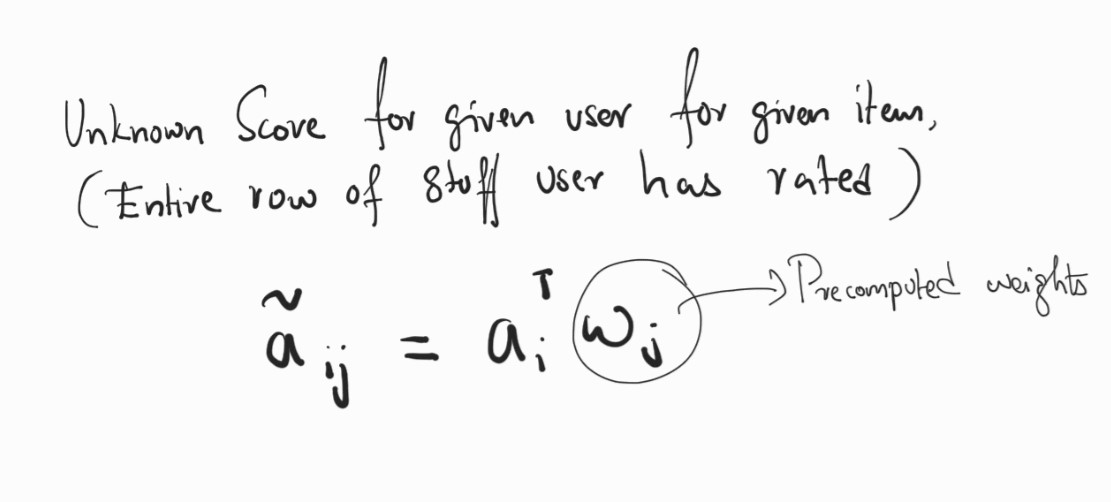 Unknown Score for given user for given item,
(Entire row of stuff user has rated)
ã ij = aᵢᵀ wⱼ → Precomputed weights